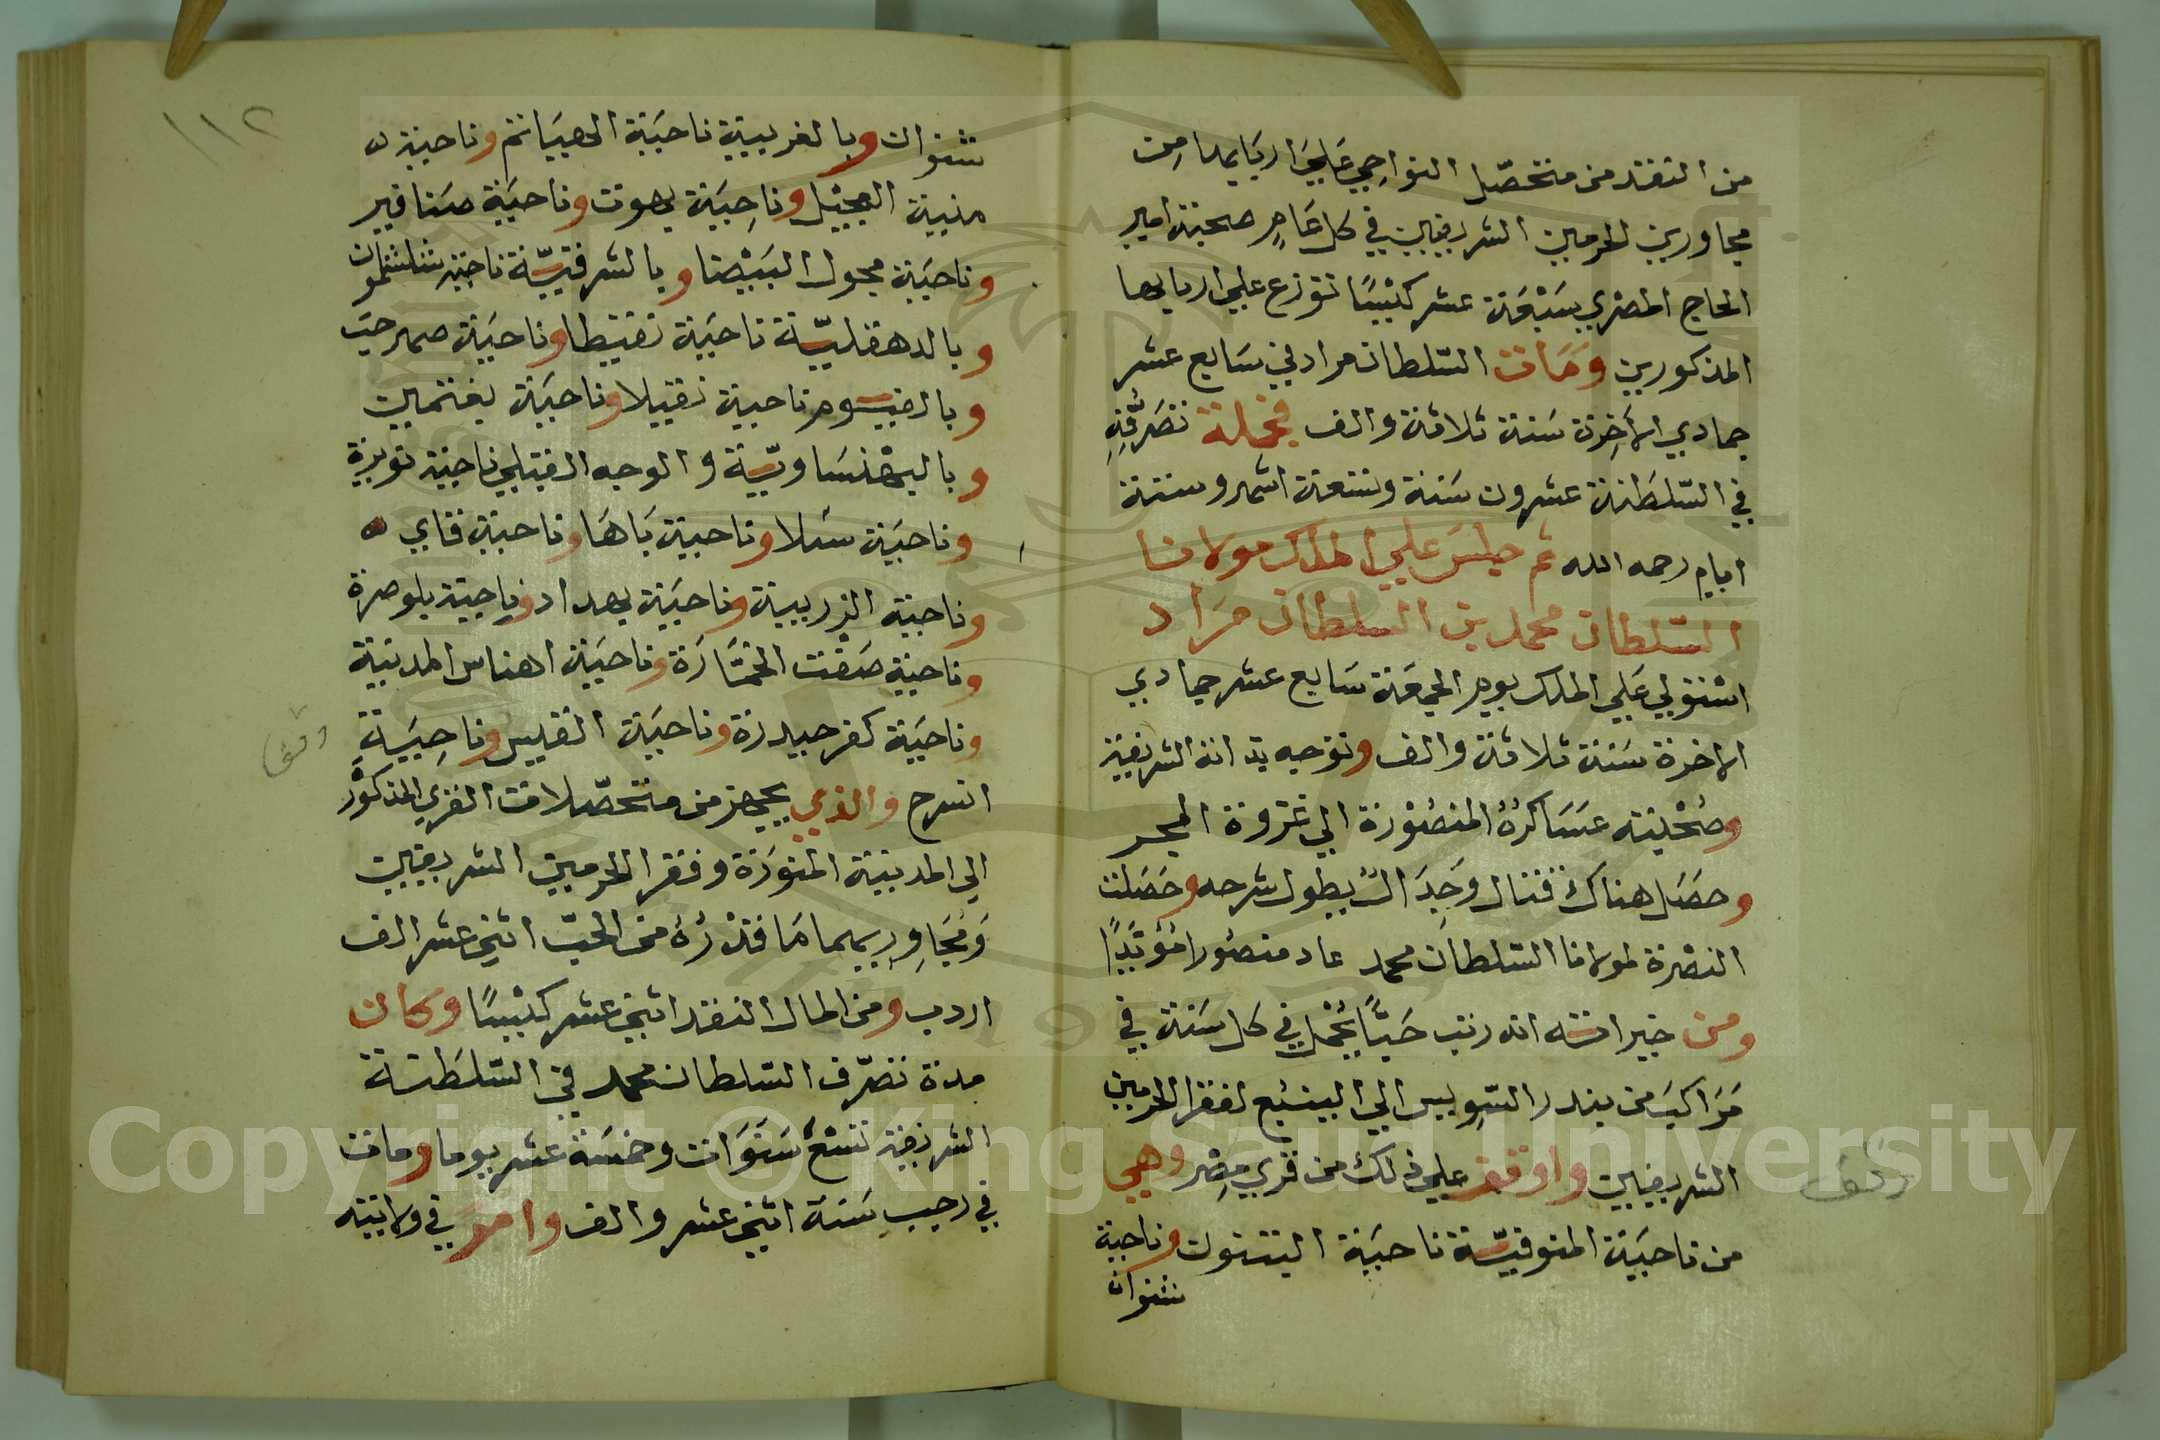 من النقد من متحصّل النواحي علي اربابها من
مجاورين الحرمين الشريفين في كل عام صحبة امير
الحاج المصري سبعة عشر كيسًا توزع علي اربابها
المذكورين ومات السلطان مراد في سابع عشر
جمادي الاخرة سنة ثلاثة والف فجملة تصرّفه
في السّلطنة عشرون سنة وتسعة اشهر وستة
ايام رحمه الله ثم جلس علي الملك مولانا
السّلطان محمد بن السلطان مراد
استولي علي الملك يوم الجمعة سابع عشر جمادي
الاخرة سنة ثلاثة والف وتوجه بذاته الشريفة
وصحبته عساكره المنصورة الي غزوة المجر
وحصل هناك قتال وجدال يطول شرحه وحصلت
النصرة لمولانا السلطان محمد عاد منصورا مؤيدًا
ومن خيراته انه رتب حبًّا يحمل في كل سنة في
مراكب من بندر السّويس الي الينبع لفقرا الحرمين
الشريفين واوقف علي ذلك من قري مصر وهي
من ناحية المنوفيّة ناحية البتنون وناحية
شنوان
وقف
١١٢
شنوان وبالغربية ناحية الهياتم وناحية
منية العجيل وناحية بهوت وناحية صنافير
وناحية مجول البيضا وبالشرقيّة ناحية شلشلمون
وبالدهقليّة ناحية نقيطا وناحية صهرجت
وبالفيوم ناحية نقيلا وناحية
وبالبهنساويّة والوجه القبلي ناحية نويرة
وناحية سلا وناحية باها وناحية قاي
وناحية الزربية وناحية بهداد وناحية بلوصرة
وناحية صفت الخمّارة وناحية اهناس المدينة
وناحية كفر حيدرة وناحية القيس وناحية
انسرح والذي يجهز من متحصّلات القري المذكور
الي المدينة المنورة وفقرا الحرمين الشريفين
ومجاوريهما ما قدره من الحبّ اثني عشر الف
اردب ومن المال النقد اثني عشر كيسًا وكان
مدة تصرّف السّلطان محمد في السّلطنة
الشريفة تسع سنوات وخمسة عشر يوما ومات
في رجب سنة اثني عشر والف وامر في ولايته
وقف
Copyright © King Saud University